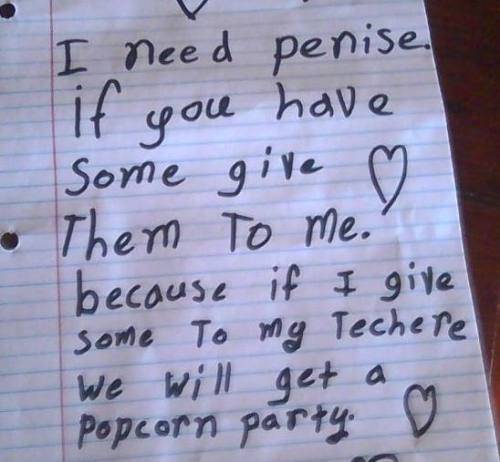 I need penise.
if you have
some give
Them To me.
because if I give
some To my Techere
we will get a
popcorn party.